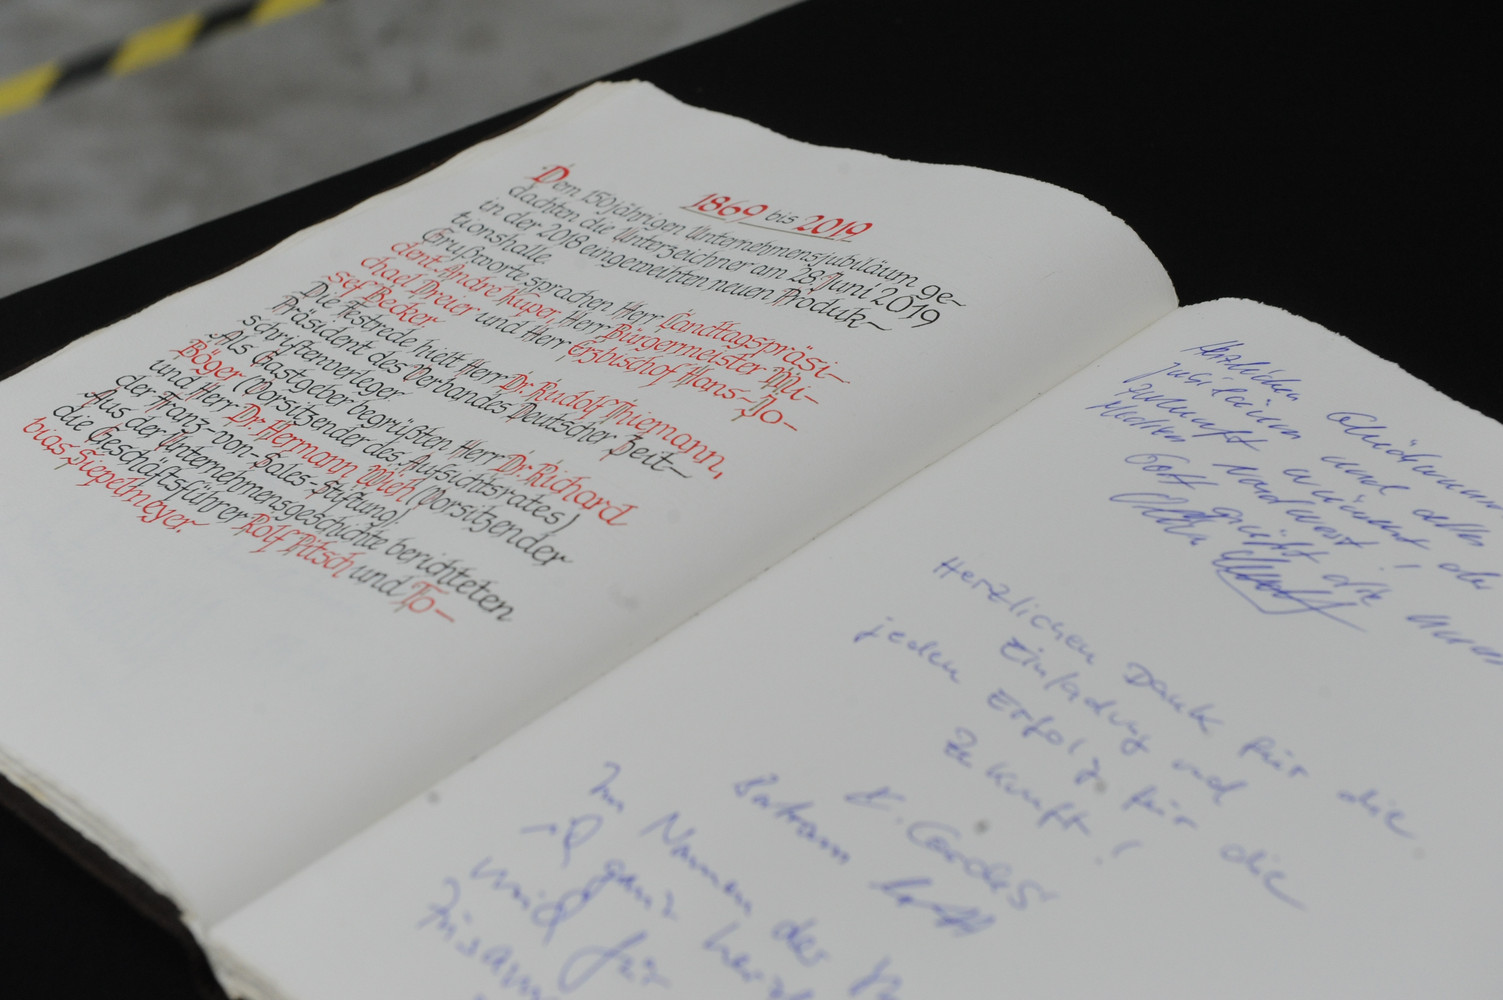 1869 bis 2019
Dem 150jährigen Unternehmensjubiläum ge-
dachten die Unterzeichner am 28. Juni 2019
in der 2018 eingeweihten neuen Produk-
tionshalle.
Grußworte sprachen Herr Landtagspräsi-
dent André Kuper, Herr Bürgermeister Mi-
chael Dreier und Herr Erzbischof Hans-Jo-
sef Becker.
Die Festrede hielt Herr Dr. Rudolf Thiemann,
Präsident des Verbandes Deutscher Zeit-
schriftenverleger
Als Gastgeber begrüßten Herr Dr. Richard
Böger (Vorsitzender des Aufsichtsrates)
und Herr Dr. Hermann Wich (Vorsitzender
der Franz-von-Sales-Stiftung).
Aus der Unternehmensgeschichte berichteten
die Geschäftsführer Rolf Pitsch und To-
bias Siepelmeyer.
Herzlichen
Jubiläum und alles
Zukunft wünscht, der
Medien Nordwest,
Gott grüßt die
Herzlichen Dank für die
Einladung und
jeden Erfolg für die
Zukunft!
K. Cordes
Im Namen der
ganz herzl
und für